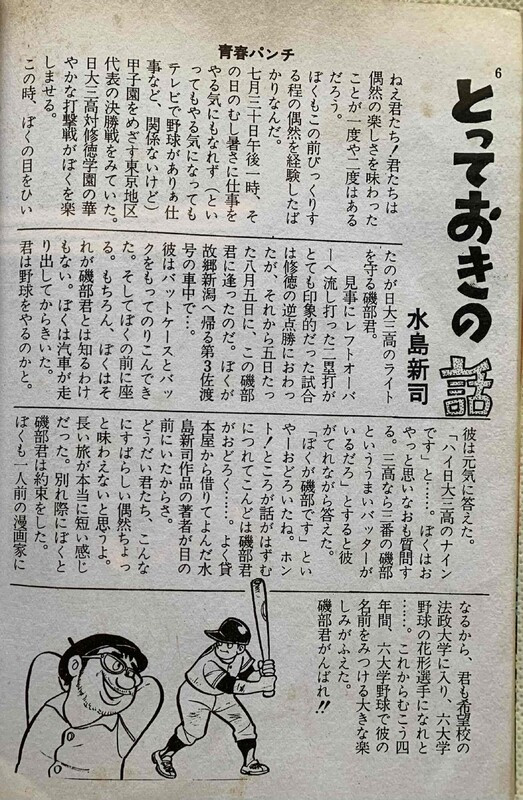 青春パンチ
6
とっておきの話
水島新司
ねぇ君たち！君たちは
偶然の楽しさを味わった
ことが一度や二度はある
だろう。
ぼくもこの前びっくりす
る程の偶然を経験したば
かりなんだ。
七月三十日午後一時、そ
の日のむし暑さに仕事を
やる気にもなれず（とい
ってもやる気になっても
テレビで野球がありぁ仕
事など、関係ないけど）
甲子園をめざす東京地区
代表の決勝戦をみていた。
日大三高対修徳学園の華
やかな打撃戦がぼくを楽
しませる。
この時、ぼくの目をひい
たのが日大三高のライト
を守る磯部君。
見事にレフトオーバ
ーへ流し打った二塁打が
とても印象的だった試合
は修徳の逆点勝におわっ
たが、それから五日たっ
た八月五日に、この磯部
君に逢ったのだ。ぼくが
故郷新潟へ帰る第３佐渡
号の車中で…。
彼はバットケースとバッ
クをもってのりこんでき
た。そしてぼくの前に座
る。もちろん、ぼくはそ
れが磯部君とは知るわけ
もない。ぼくは汽車が走
り出してからきいた。
君は野球をやるのかと。
彼は元気に答えた。
「ハイ日大三高のナイン
です」と……。ぼくはお
やっと思いなおも質問す
る。三高なら三番の磯部
といううまいバッターが
いるだろ」とすると彼
がてれながら答えた。
「ぼくが磯部です」とい
やーおどろいたね。ホン
ト！ところが話がはずむ
につれてこんどは磯部君
がおどろく……。よく貸
本屋から借りてよんだ水
島新司作品の著者が目の
前にいたからさ。
どうだい君たち、こんな
にすばらしい偶然ちょっ
と味わえないと思うよ。
長い旅が本当に短い感じ
だった。別れ際にぼくと
磯部君は約束をした。
ぼくも一人前の漫画家に
なるから、君も希望校の
法政大学に入り、六大学
野球の花形選手になれと
……。これからむこう四
年間、六大学野球で彼の
名前をみつける大きな楽
しみがふえた。
磯部君がんばれ!!